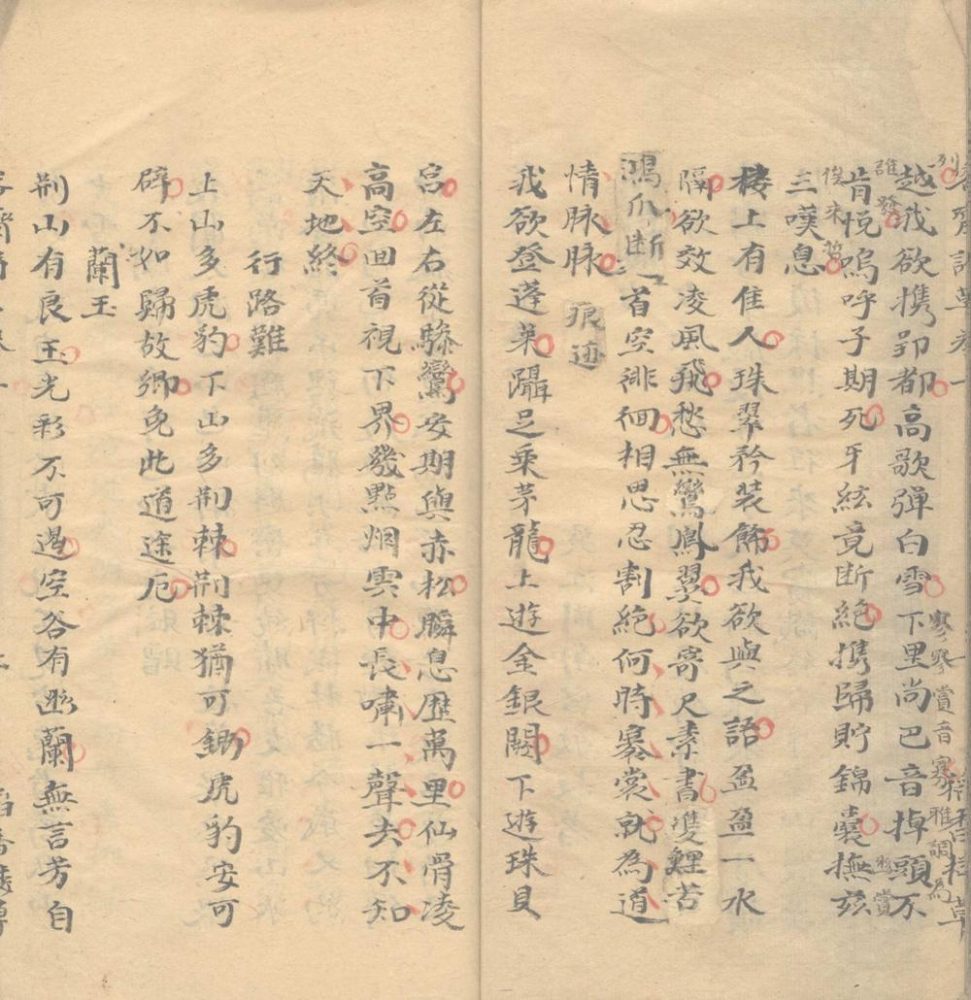 越我欲携卭都高歌弹白雪下里尚巴音掉頭不
肯悦嗚呼子期死牙絃竟断絶携歸貯錦囊撫兹
三嘆息
寥寥賞音寡雅調為
誰
後来
樓上有佳人珠翠矜装飾我欲與之語盈盈一水
隔欲效凌風飛愁無鸞鳳翼欲寄尺素書雙鯉苦
鴻爪断首空徘徊相思忍割絶何時褰裳就為道
情脉脉
痕迹
我欲登蓬莱躡足乘茅龍上遊金銀闕下遊珠貝
宫左右從驂鸞安期與赤松瞬息歴萬里仙骨凌
高空回首視下界幾點烟雲中長嘯一聲去不知
天地終
行路難
上山多虎豹下山多荆棘荆棘猶可鋤虎豹安可
辟不如歸故鄉免此道途厄
蘭玉
荆山有良玉光彩不可遏空谷有幽蘭無言芳自